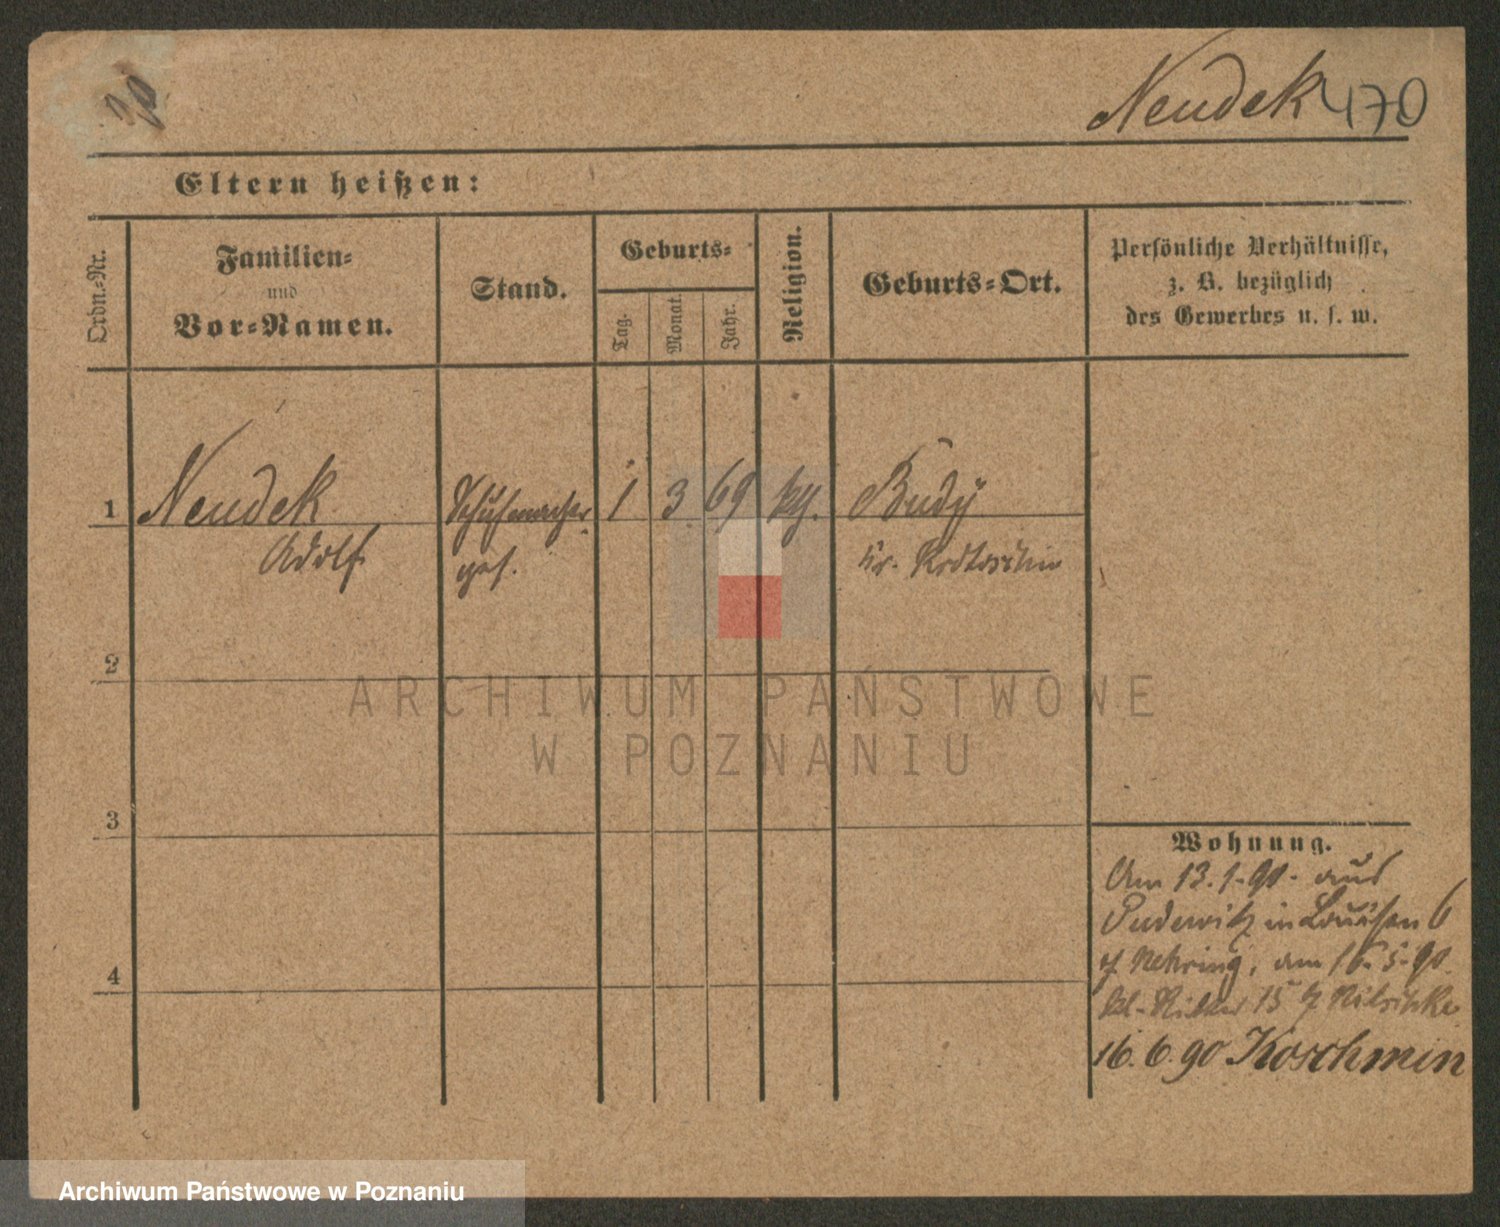 90
Neudek 470
Eltern heißen:
Ordn.-Nr.
Familien-
und
Vor-Namen.
Stand.
Geburts-
Tag.
Monat.
Jahr.
Religion.
Geburts-Ort.
Persönliche Verhältnisse,
z. B. bezüglich
des Gewerbes u. s. w.
1
Neudek
Adolf
Schuhmacher
ges.
1
3
69
kth.
Budy
Kr. Krotoschin
2
3
4
Wohnung.
Am 13.1.90. aus
Pudewitz in 6
Nehring, am 5.90.
kl. Ritter 15
16.6.90 Koschmin
ARCHIWUM PAŃSTWOWE
W POZNANIU
Archiwum Państwowe w Poznaniu